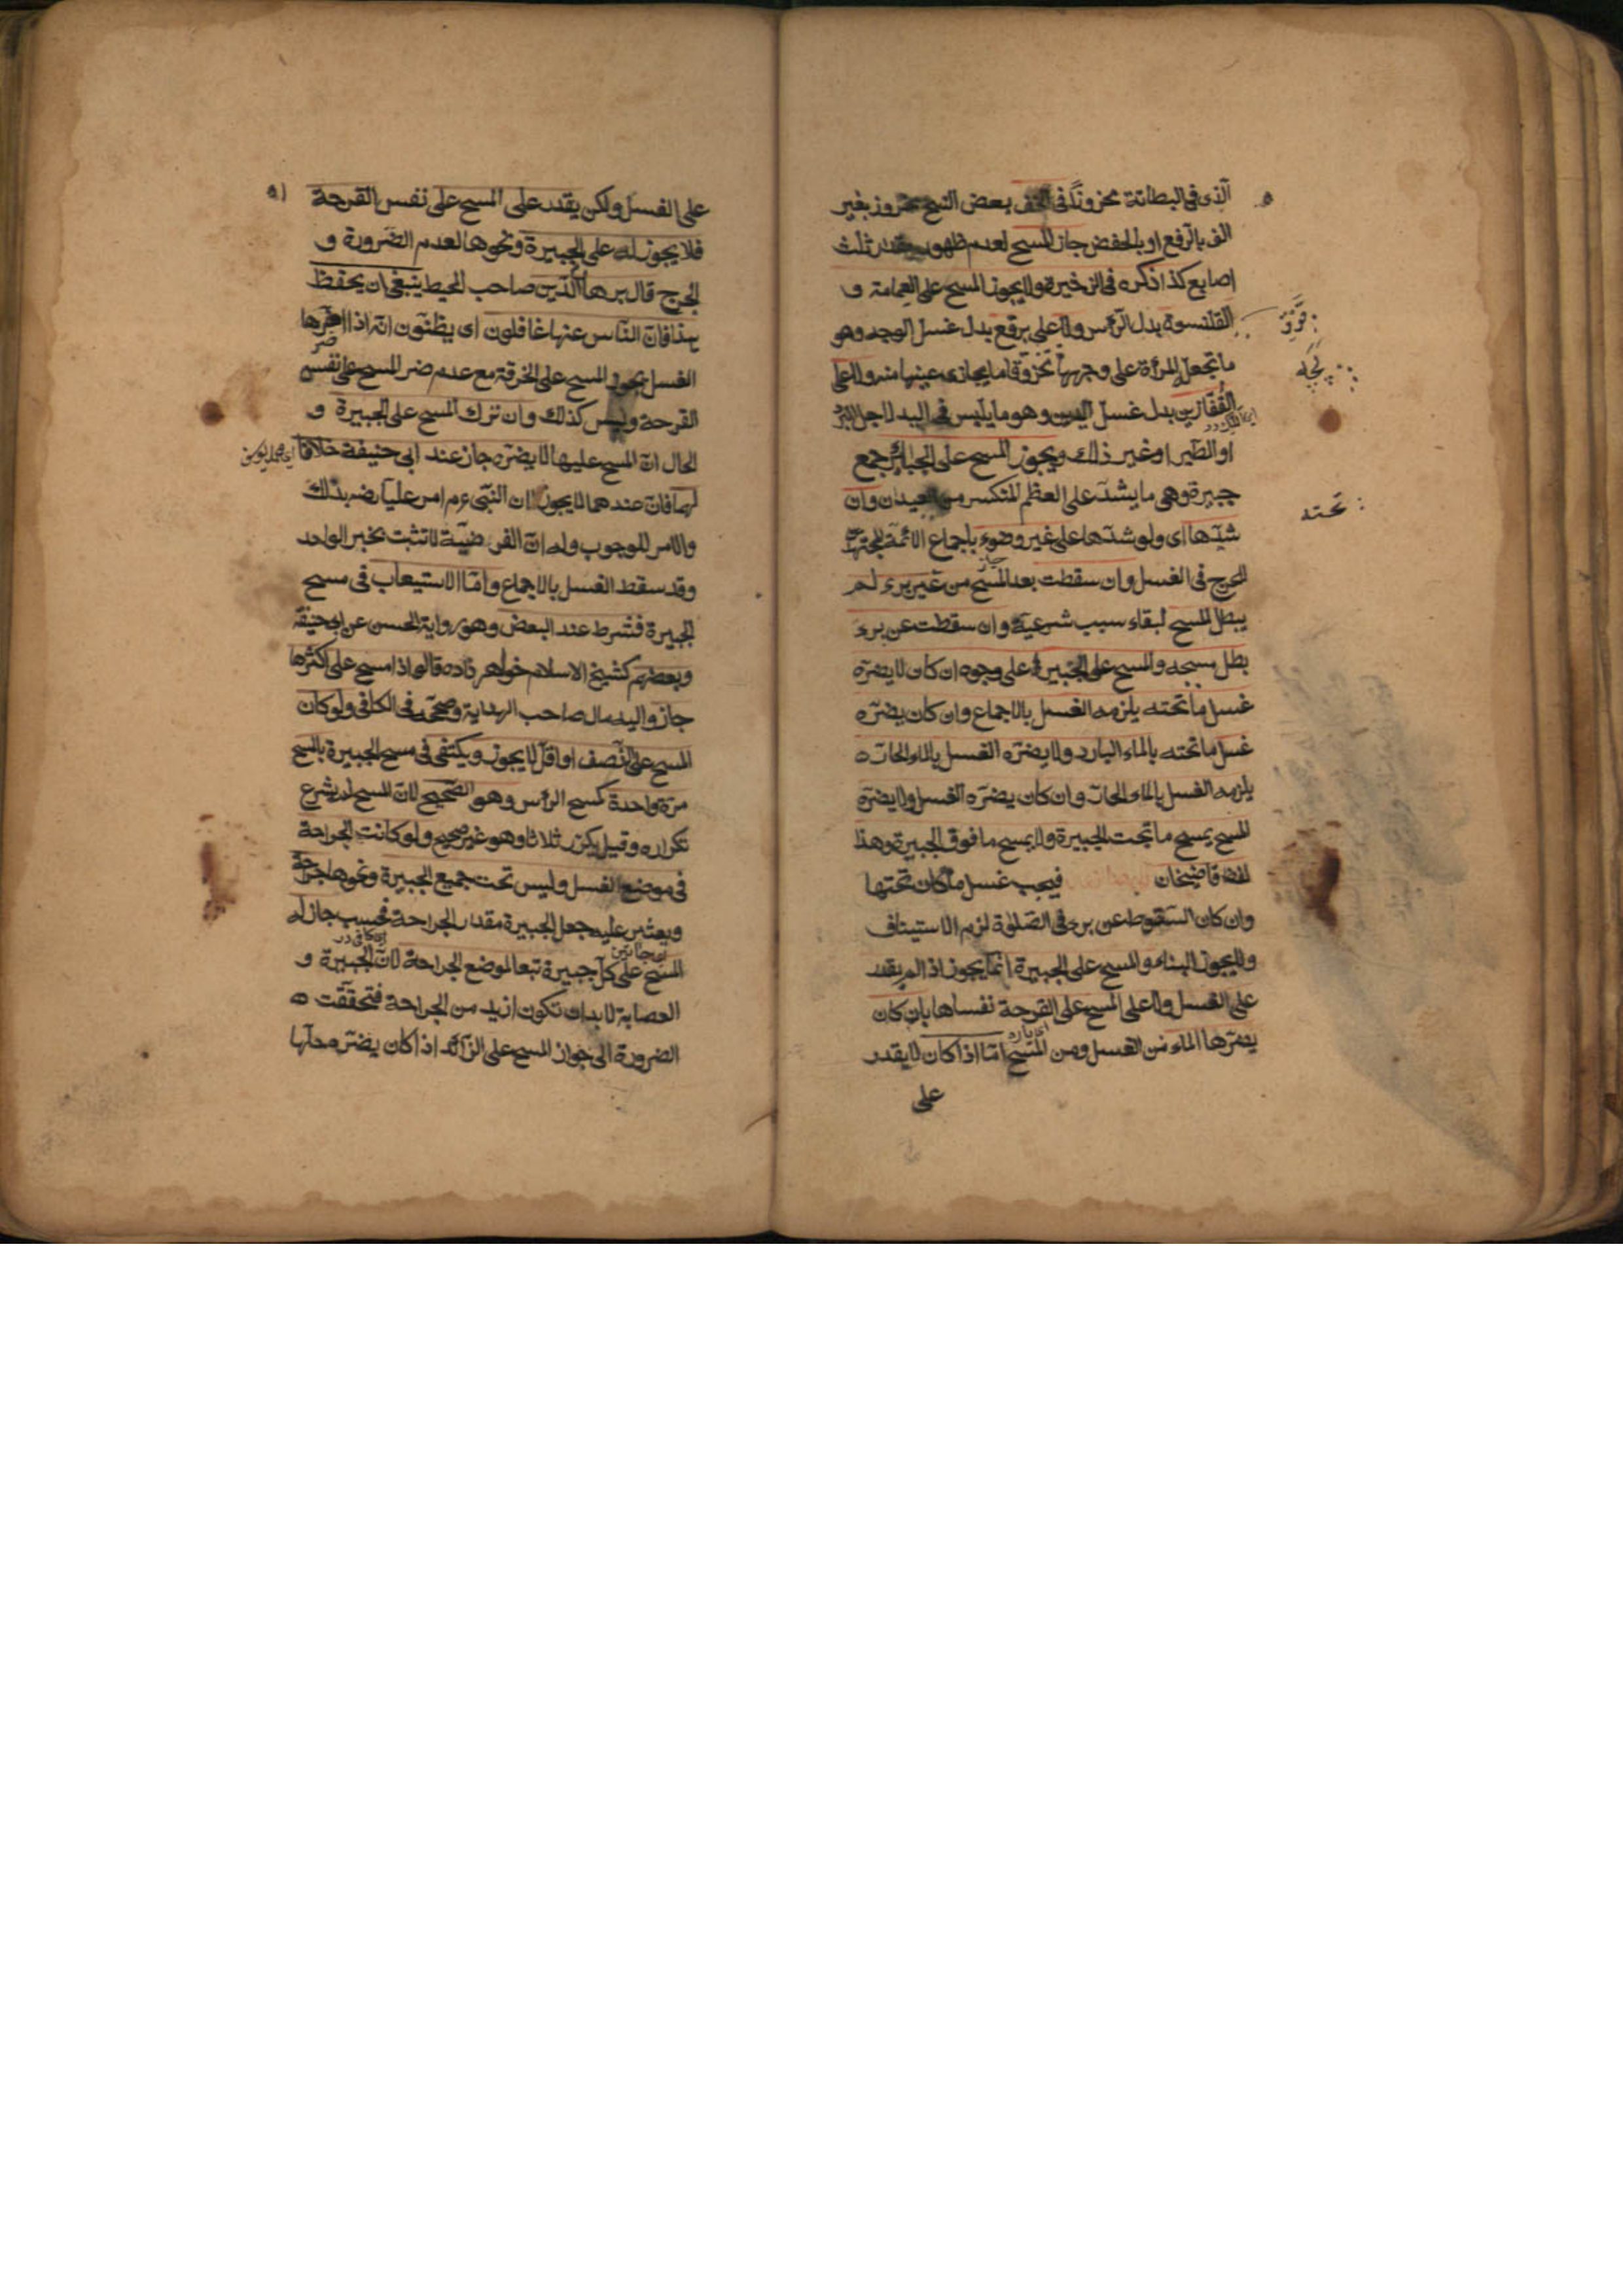 الذى فى البطانة مخروزًا فى الخف بعض النسخ مخروز بغير
الف بالرفع او بالخفض جاز المسح لعدم ظهور مقدار ثلث
اصابع كذا ذكره فى الذخيرة ولا يجوز المسح على العمامة و
القلنسوة بدل الرأس ولا على برقع بدل غسل الوجه وهو
ما تجعل المرأة على وجهها تخزوقا ما يحاذى عينيها منه ولا على
القُفّازين بدل غسل اليدين وهو ما يلبس فى اليد لاجل البرد
او الطير او غير ذلك ويجوز المسح على الجبائر جمع
جبيرة وهى ما يشد على العظم المنكسر من العيدان وان
شدّها اى ولو شدّها على غير وضوء باجماع الائمة المجتهدين
للحرج فى الغسل وان سقطت بعد المسح من غير برء لم
يبطل المسح لبقاء سبب شرعيته وان سقطت عن برء
بطل مسحه والمسح على الجبيرة على وجوه ان كان لا يضره
غسل ما تحته يلزمه الغسل بالاجماع وان كان يضرّه
غسل ما تحته بالماء البارد ولا يضرّه الغسل بالماء الحارّ ه
يلزمه الغسل بالماء الحارّ وان كان يضرّه الغسل ولا يضرّه
المسح يمسح ما تحت الجبيرة ولا يمسح ما فوق الجبيرة وهذا
قاضيخان فيجب غسل ما كان تحتها
وان كان السقوط عن برء فى الصلوة لزم الاستيناف
ولا يجوز البناء والمسح على الجبيرة انما يجوز اذا لم يقدر
على الغسل ولا على المسح على القرحة نفساها بان كان
يضرّها الماء من الغسل ومن المسح امّا اذا كان لا يقدر
على
تحته
على الغسل ولكن يقدر على المسح على نفس القرحة
فلا يجوز له على الجبيرة ونحوها لعدم الضرورة و
الحرج قال برهان الدّين صاحب المحيط ينبغى ان يحفظ
هذا فان النّاس عنها غافلون اى يظنّون انّه اذا اضرّها
الغسل يجوز المسح على الخرقة مع عدم ضر المسح على نفس
القرحة وليس كذلك وان ترك المسح على الجبيرة و
الحال انّ المسح عليها لا يضرّه جاز عند ابى حنيفة خلافا
لهما فان عندهما لا يجوز لان النّبىّ ءم امر عليّا رضه بذلك
والامر للوجوب وله انّ الفرضيّة لا تثبت بخبر الواحد
وقد سقط الغسل بالاجماع وامّا الاستيعاب فى مسح
الجبيرة فشرط عند البعض وهو رواية الحسن عن ابى حنيفة
وبعضهم كشيخ الاسلام خواهر زاده قالوا اذا مسح على اكثرها
جاز واليه مال صاحب الهداية وصحّحه فى الكافى ولو كان
المسح على النّصف او اقلّ لا يجوز ويكتفى فى مسح الجبيرة بالمسح
مرّة واحدة كمسح الرأس وهو الصّحيح لانّ المسح لم يشرع
تكراره وقيل يكرّر ثلاثا وهو غير صحيح ولو كانت الجراحة
فى موضع الغسل وليس تحت جميع الجبيرة ونحوها جراحة
جعل الجبيرة مقدار الجراحة فحسب جاز له
المسح على كلّ جبيرة تبعا لموضع الجراحة لانّ الجبيرة و
العصابة لا بد ان تكون ازيد من الجراحة فتحقّقت ه
الضرورة الى جواز المسح على الزّائد اذا كان يضرّه حلّها